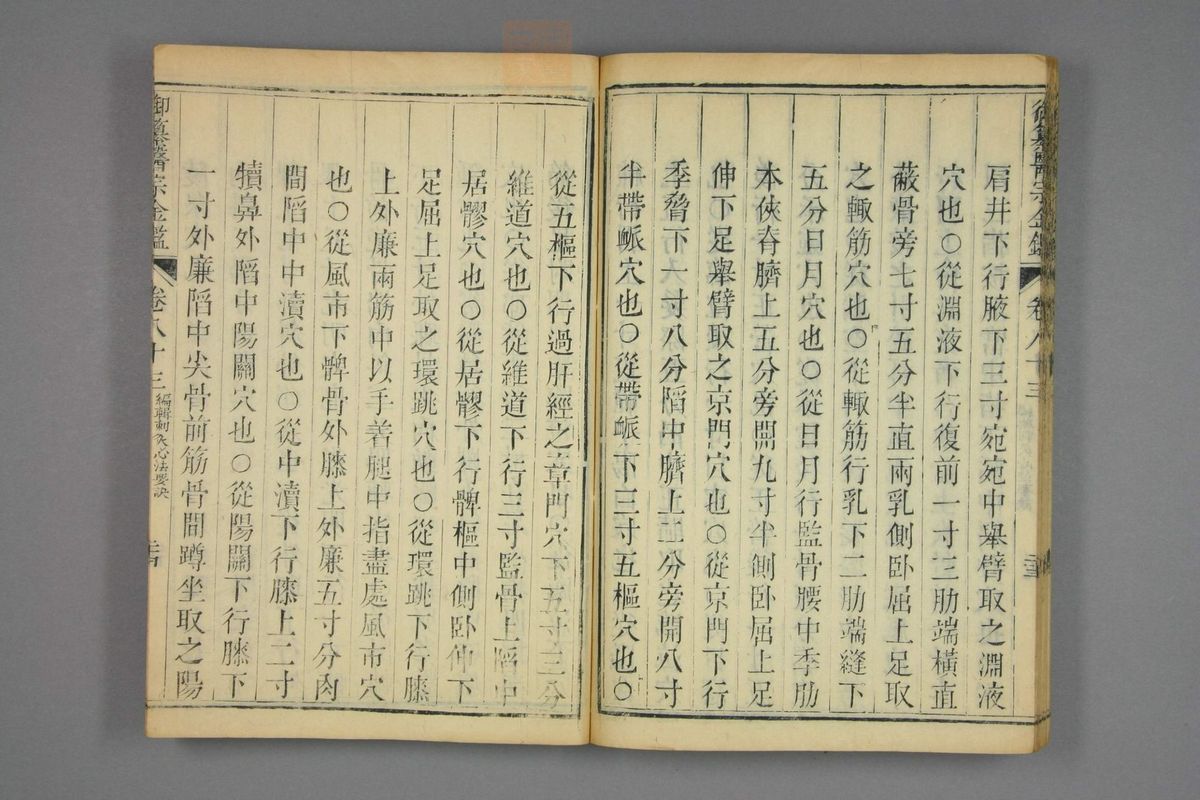 御纂醫宗金鑑 卷八十三
肩井下行腋下三寸宛宛中舉臂取之淵液
穴也○從淵液下行復前一寸三肋端橫直
蔽骨旁七寸五分半直兩乳側卧屈上足取
之輙筋穴也○從輙筋行乳下二肋端縫下
五分日月穴也○從日月行監骨腰中季肋
本俠脊臍上五分旁開九寸半側卧屈上足
伸下足舉臂取之京門穴也○從京門下行
季脅下一寸八分䧟中臍上二分旁開八寸
半帶脈穴也○從帶脈下三寸五樞穴也○
從五樞下行過肝經之章門穴下五寸三分
維道穴也○從維道下行三寸監骨上䧟中
居髎穴也○從居髎下行髀樞中側卧伸下
足屈上足取之環跳穴也○從環跳下行膝
上外廉兩筋中以手着腿中指盡處風市穴
也○從風市下髀骨外膝上外廉五寸分肉
間䧟中中瀆穴也○從中瀆下行膝上二寸
犢鼻外䧟中陽關穴也○從陽關下行膝下
一寸外廉䧟中尖骨前筋骨間蹲坐取之陽
御纂醫宗金鑑 卷八十三 編輯刺灸心法要訣